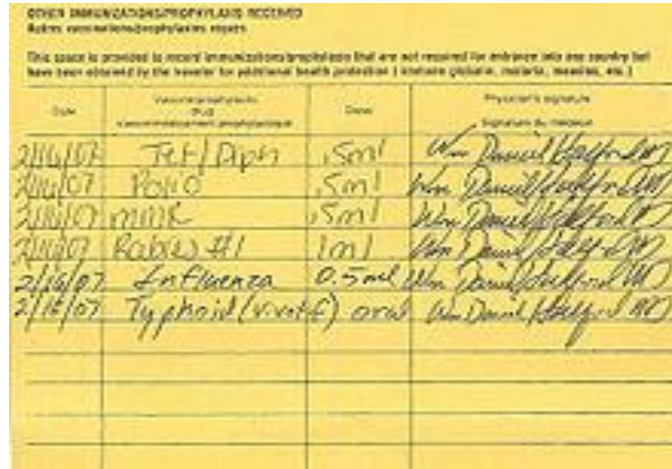 OTHER IMMUNIZATIONS/PROPHYLAXIS RECEIVED
Autres vaccinations/prophylaxies reçues
This space is provided to record immunizations/prophylaxis that are not required for entrance into any country but
have been obtained by the traveler for additional health protection (immune globulin, malaria, measles, etc.)
Date Vaccine/prophylactic drug Vaccin/médicament prophylactique Dose Physician's signature Signature du médecin
2/16/07 Tet/Diph .5ml Wm Daniel MD
2/16/07 Polio .5ml Wm Daniel MD
2/16/07 MMR .5ml Wm Daniel MD
2/16/07 Rabies #1 1ml Wm Daniel MD
2/16/07 Influenza 0.5ml Wm Daniel MD
2/16/07 Typhoid (vivotif) oral Wm Daniel MD